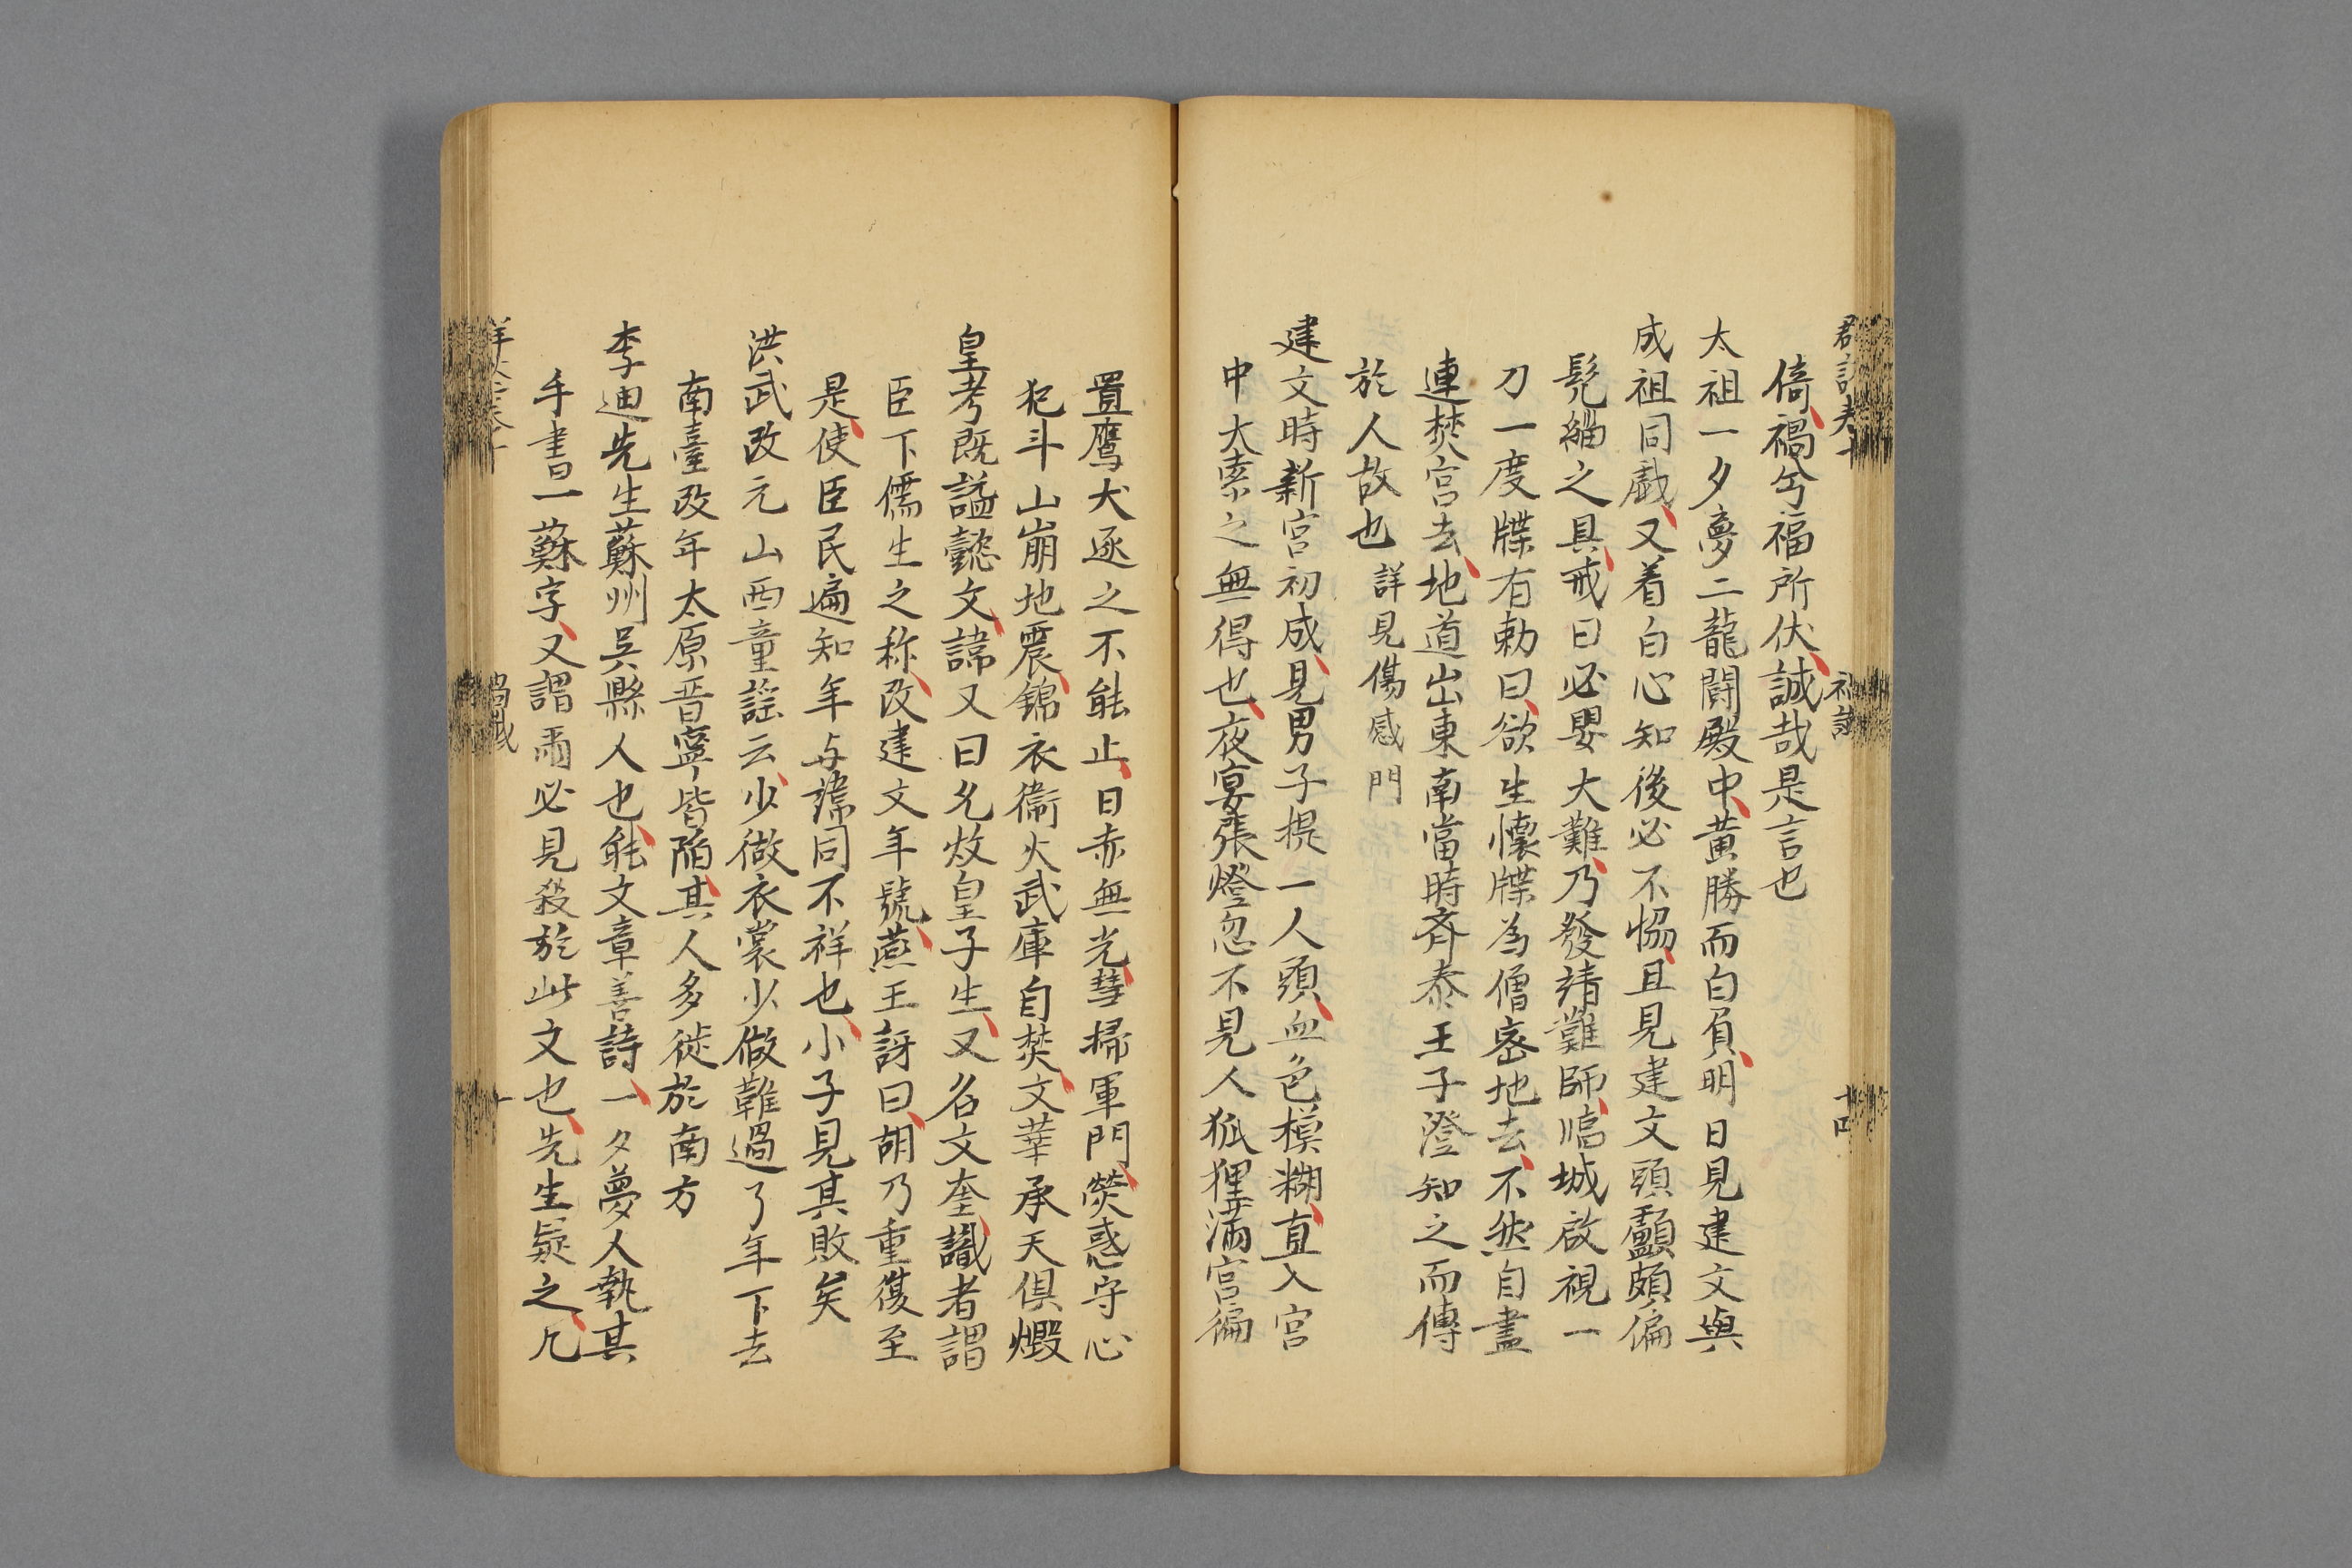 倚禍兮福所伏誠哉是言也
太祖一夕夢二龍鬪殿中黄勝而白負明日見建文與
成祖同戯又着白心知後必不恊且見建文頭顱頗偏
髡緇之具戒曰必嬰大難乃發靖難師臨城啟視一
刀一度牒有勅曰欲生懐牒為僧密地去不然自盡
連焚宫去地道出東南當時齊泰王子澄知之而傳
於人故也詳見傷感門
建文時新宫初成見男子提一人頭血色模糊直入宫
中大索之無得也夜宴張燈忽不見人狐狸滿宫徧
置鷹犬逐之不能止日赤無光彗掃軍門熒惑守心
犯斗山崩地震錦衣衛火武庫自焚文華承天俱燬
皇考既諡懿文諱又曰允炆皇子生又名文奎識者謂
臣下儒生之称改建文年號燕王訝曰胡乃重復至
是使臣民遍知年与諱同不祥也小子見其敗矣
洪武改元山西童謡云少做衣裳少做鞋過了年下去
南臺改年太原晋寧皆陷其人多徙於南方
李迪先生蘇州吳縣人也能文章善詩一夕夢人執其
手書一蘇字又謂爾必見殺於此文也先生疑之凡